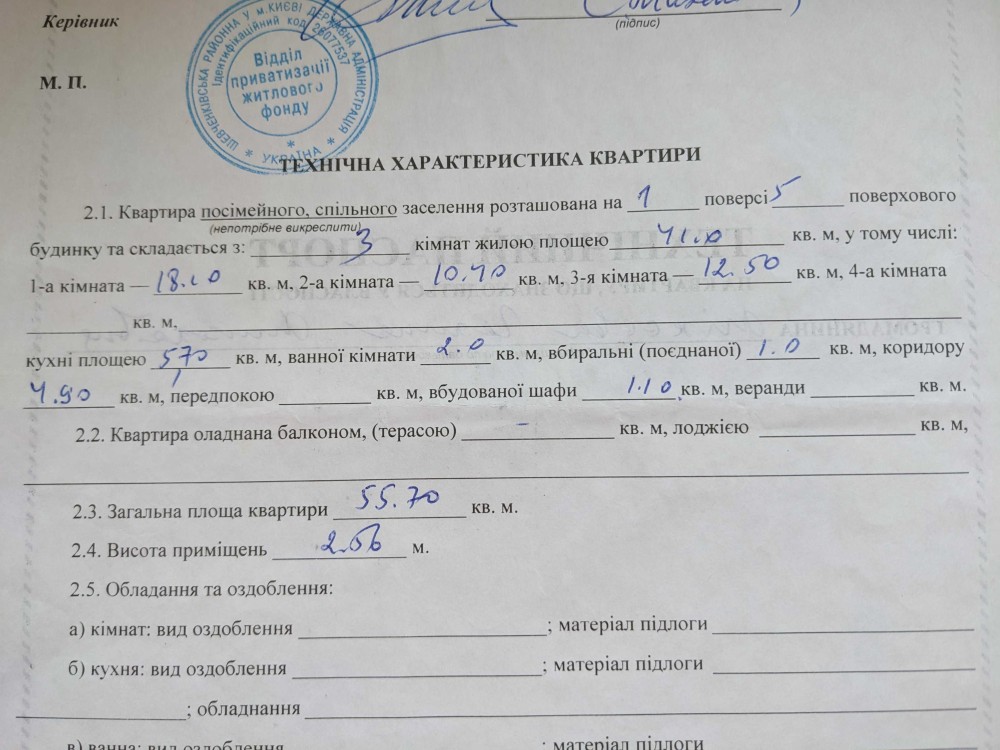 Керівник
(підпис)
М. П.
ШЕВЧЕНКІВСЬКА РАЙОННА У М.КИЄВІ ДЕРЖАВНА АДМІНІСТРАЦІЯ
* УКРАЇНА *
Ідентифікаційний код 26077537
Відділ
приватизації
житлового
фонду
*
ТЕХНІЧНА ХАРАКТЕРИСТИКА КВАРТИРИ
2.1. Квартира посімейного, спільного заселення розташована на 1 поверсі 5 поверхового
(непотрібне викреслити)
будинку та складається з: 3 кімнат жилою площею 41.0 кв. м, у тому числі:
1-а кімната — кв. м, 2-а кімната — 10.40 кв. м, 3-я кімната — 12.50 кв. м, 4-а кімната
кв. м,
кухні площею 5,70 кв. м, ванної кімнати 2.0 кв. м, вбиральні (поєднаної) 1.0 кв. м, коридору
4.90 кв. м, передпокою кв. м, вбудованої шафи 1.10 кв. м, веранди кв. м.
2.2. Квартира оладнана балконом, (терасою) - кв. м, лоджією кв. м,
2.3. Загальна площа квартири 55.70 кв. м.
2.4. Висота приміщень м.
2.5. Обладання та оздоблення:
а) кімнат: вид оздоблення ; матеріал підлоги
б) кухня: вид оздоблення ; матеріал підлоги
; обладнання
в) ванна: вид оздоблення ; матеріал підлоги